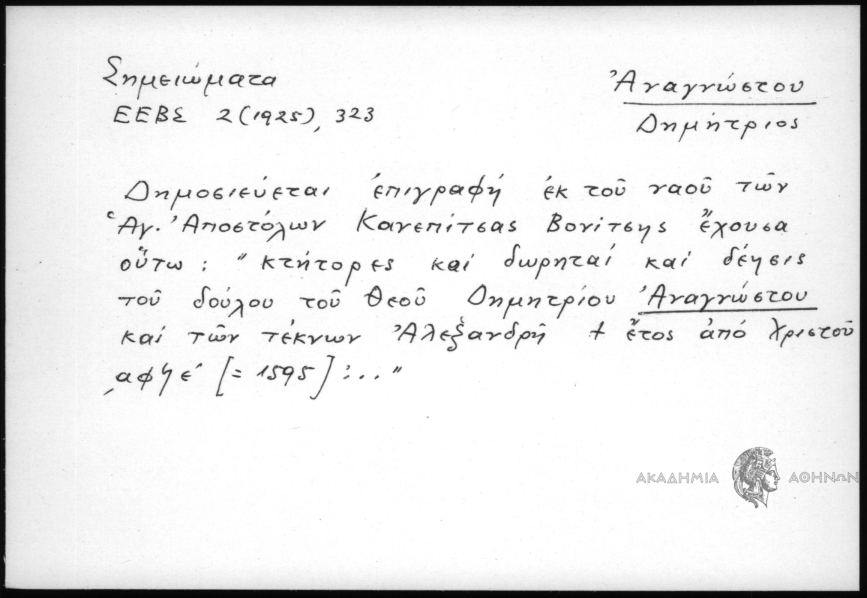 Σημειώματα
ΕΕΒΣ 2 (1925), 323
Ἀναγνώστου
Δημήτριος
Δημοσιεύεται ἐπιγραφή ἐκ τοῦ ναοῦ τῶν
Ἁγ. Ἀποστόλων Κανεπίτσας Βονίτσης ἔχουσα
οὕτω : "κτήτορες καί δωρηταί καί δέησις
τοῦ δούλου τοῦ Θεοῦ Δημητρίου Ἀναγνώστου
καί τῶν τέκνων Ἀλεξανδρῆ + ἔτος ἀπό Χριστοῦ
͵αφϟε´ [= 1595] : ..."
ΑΚΑΔΗΜΙΑ ΑΘΗΝΩΝ